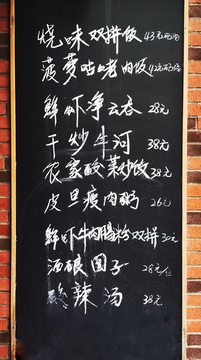 烧味双拼饭 43元
菠萝咕咾肉饭 42元
鲜虾净云吞 28元
干炒牛河 38元
农家酸菜炒饭 38元
皮旦瘦肉粥 26元
鲜虾牛肉肠粉双拼 30元
酒酿圆子 28元/位
酸辣汤 38元